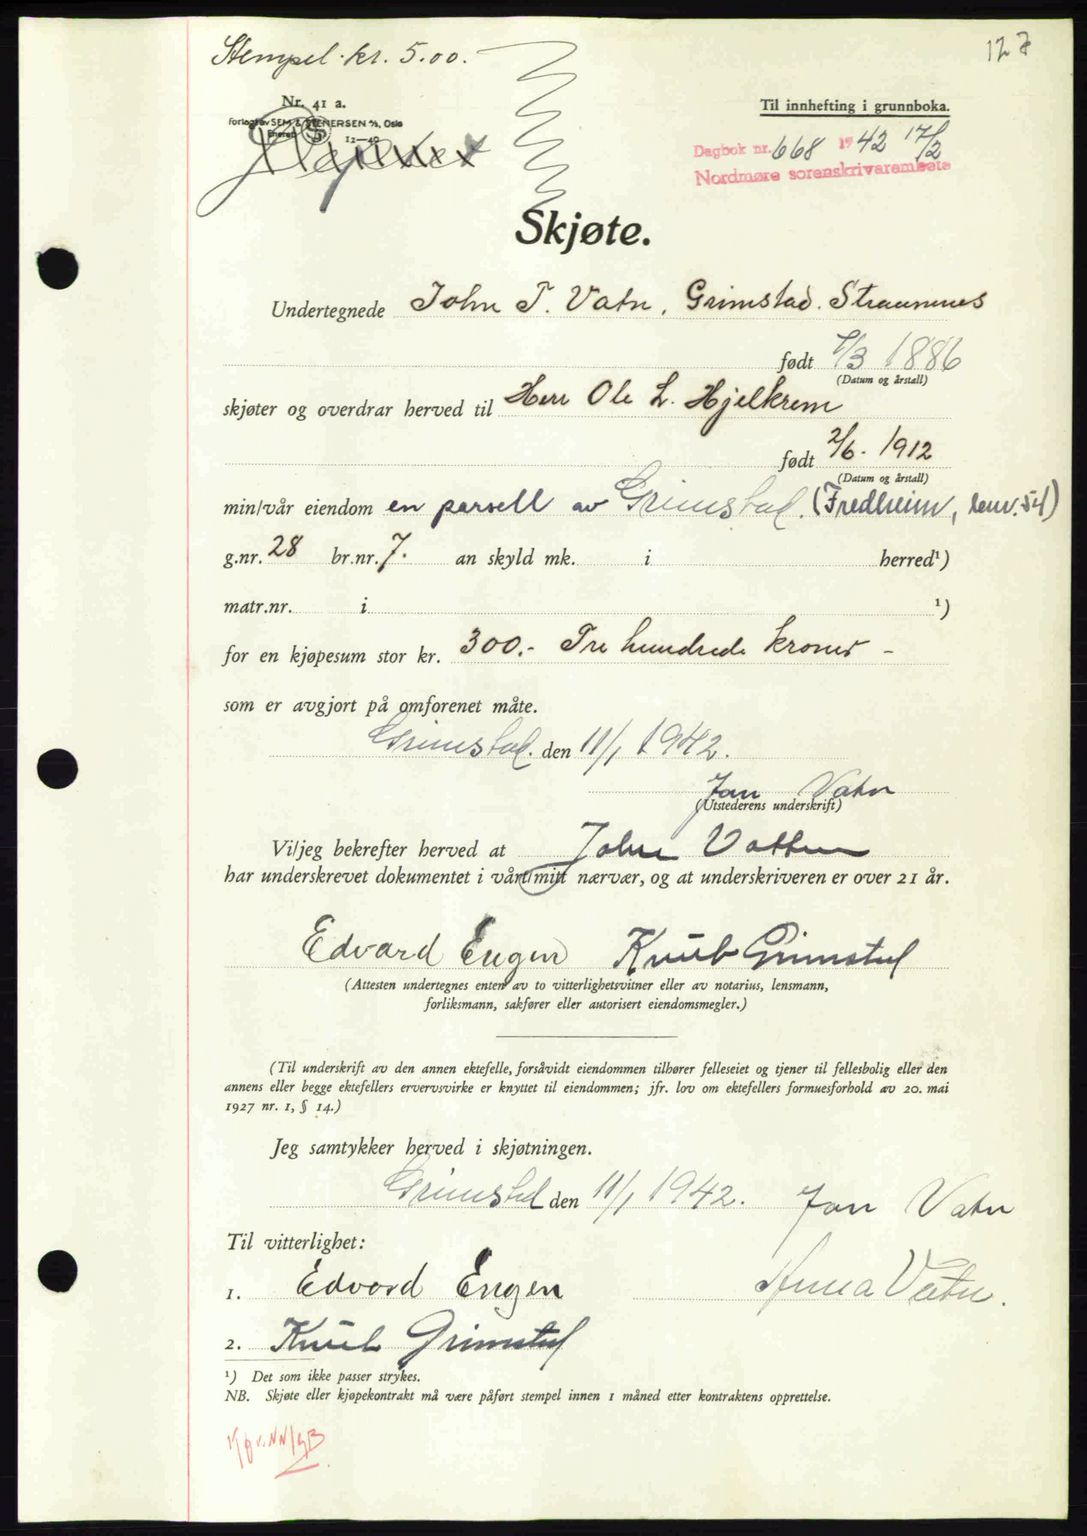 Stempel kr. 5.00.
127
Nr. 41 a.
Forlagt av SEM & STENERSEN A/S, Oslo
12—40
Til innhefting i grunnboka.
Dagbok nr. 668 1942 17/2
Nordmøre sorenskrivarembete
Skjøte.
Undertegnede John T. Vatn, Grimstad. Straumsnes
født 1/3 1886
(Datum og årstall)
skjøter og overdrar herved til Herr Ole L. Hjelkrem
født 2/6. 1912
(Datum og årstall)
min/vår eiendom en parsell av Grimstad. (Fredheim, 54)
g.nr. 28 br.nr. 7. an skyld mk. i herred¹)
matr.nr. i ¹)
for en kjøpesum stor kr. 300.- Tre hundrede kroner -
som er avgjort på omforenet måte.
Grimstad. den 11/1 1942.
Jon Vatn
(Utstederens underskrift)
Vi/jeg bekrefter herved at John Vatten
har underskrevet dokumentet i vårt/mitt nærvær, og at underskriveren er over 21 år.
Edvard Engen Knut Grimstad
(Attesten undertegnes enten av to vitterlighetsvitner eller av notarius, lensmann,
forliksmann, sakfører eller autorisert eiendomsmegler.)
(Til underskrift av den annen ektefelle, forsåvidt eiendommen tilhører felleseiet og tjener til fellesbolig eller den
annens eller begge ektefellers ervervsvirke er knyttet til eiendommen; jfr. lov om ektefellers formuesforhold av 20. mai
1927 nr. 1, § 14.)
Jeg samtykker herved i skjøtningen.
Grimstad den 11/1 1942. Jon Vatn
Til vitterlighet:
1. Edvard Engen Anna Vatn.
2. Knut Grimstad
¹) Det som ikke passer strykes.
NB. Skjøte eller kjøpekontrakt må være påført stempel innen 1 måned etter kontraktens opprettelse.